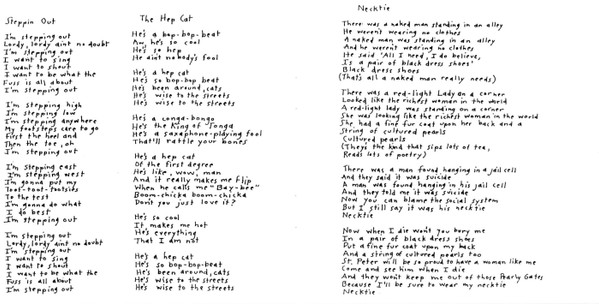 Steppin Out
I'm stepping out
Lordy, lordy aint no doubt
I'm stepping out
I want to sing
I want to shout
I want to be what the
Fuss is all about
I'm stepping out
I'm stepping high
I'm stepping low
I'm stepping anywhere
My footsteps care to go
First the heel and
Then the toe, oh
I'm stepping out
I'm stepping east
I'm stepping west
I'm gonna put my
Toot-toot-tootsies
To the test
I'm gonna do what
I do best
I'm stepping out
I'm stepping out
Lordy, lordy aint no doubt
I'm stepping out
I want to sing
I want to shout
I want to be what the
Fuss is all about
I'm stepping out
The Hep Cat
He's a bop-bop-beat
Aw, he's so cool
He's so hep
He aint nobody's fool
He's a hep cat
He's so bop-bop beat
He's been around, cats
He's wise to the streets
He's wise to the streets
He's a conga-bongo
He's the King of Tonga
He's a saxaphone-playing fool
That'll rattle your bones
He's a hep cat
Of the first degree
He's like, wow, man
And it really makes me flip
When he calls me "Bay-bee"
Boom-chicka boom-chicka
Don't you just love it?
He's so cool
It makes me hot
He's everything
That I am not
He's a hep cat
He's so bop-bop-beat
He's been around, cats
He's wise to the streets
He's wise to the streets
Necktie
There was a naked man standing in an alley
He weren't wearing no clothes
A naked man was standing in an alley
And he weren't wearing no clothes
He said 'All I need, I do believe,
Is a pair of black dress shoes'
Black dress shoes
(That's all a naked man really needs)
There was a red-light Lady on a corner
Looked like the richest woman in the world
A red-light lady was standing on a corner
She was looking like the richest woman in the world
She had a fine fur coat upon her back and a
String of cultured pearls
Cultured pearls
(They's the kind that sips lots of tea,
Reads lots of poetry)
There was a man found hanging in a jail cell
And they said it was suicide
A man was found hanging in his jail cell
And they told me it was suicide
Now you can blame the social system
But I still say it was his necktie
Necktie
Now when I die won't you bury me
In a pair of black dress shoes
Put a fine fur coat upon my back
And a string of cultured pearls too
St. Peter will be so proud to have a woman like me
Come and see him when I die
And they won't keep me out of those Pearly Gates
Because I'll be sure to wear my necktie
Necktie